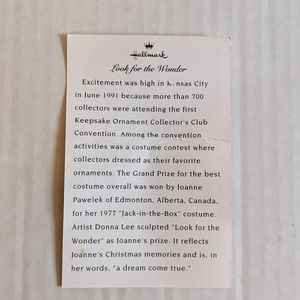 Hallmark
Look for the Wonder
Excitement was high in Kansas City
in June 1991 because more than 700
collectors were attending the first
Keepsake Ornament Collector's Club
Convention. Among the convention
activities was a costume contest where
collectors dressed as their favorite
ornaments. The Grand Prize for the best
costume overall was won by Joanne
Pawelek of Edmonton, Alberta, Canada,
for her 1977 "Jack-in-the-Box" costume.
Artist Donna Lee sculpted "Look for the
Wonder" as Joanne's prize. It reflects
Joanne's Christmas memories and is, in
her words, "a dream come true."